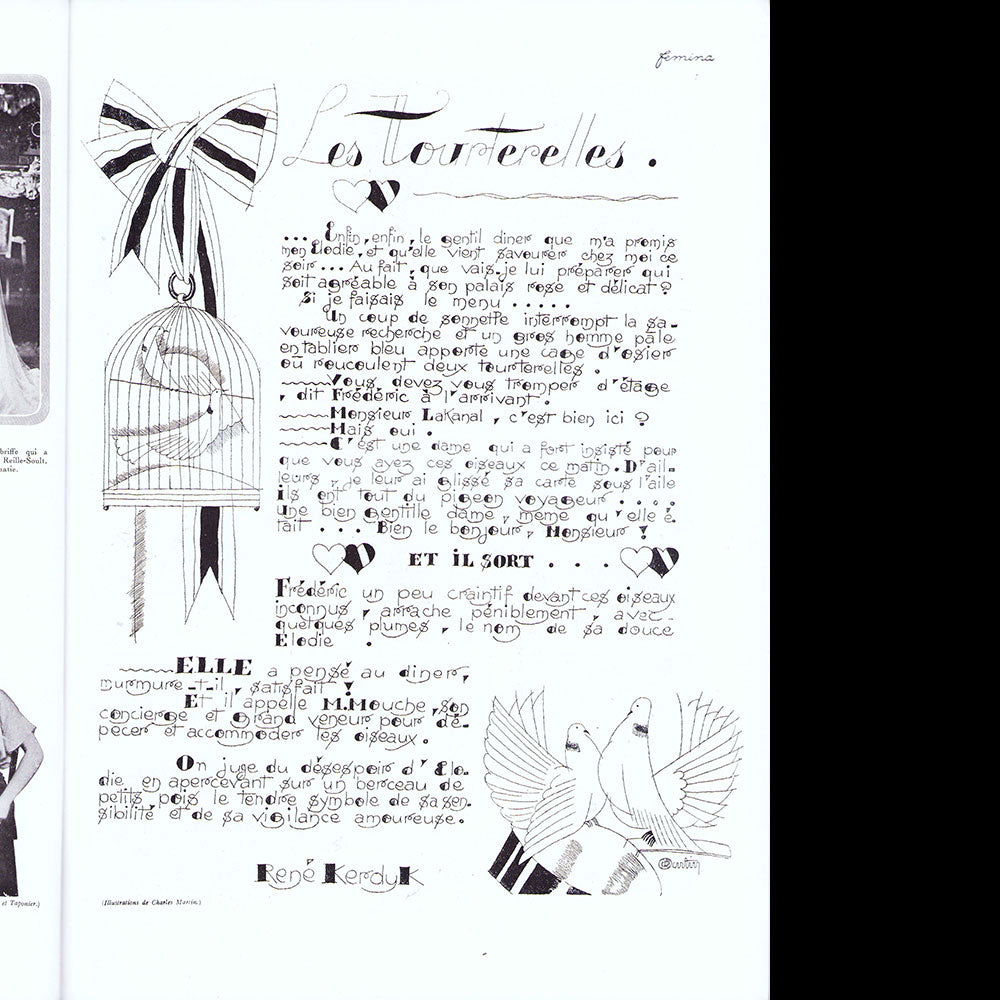 femina
Les Tourterelles.
... Enfin, enfin, le gentil diner que m'a promis
mon Elodie, et qu'elle vient savourer chez moi ce
soir... Au fait, que vais-je lui préparer qui
soit agréable à son palais rose et délicat?
Si je faisais le menu .....
Un coup de sonnette interrompt la sa-
voureuse recherche et un gros homme pâle
en tablier bleu apporte une cage d'osier
où roucoulent deux tourterelles.
Vous devez vous tromper d'étage
, dit Frédéric à l'arrivant.
Monsieur Lakanal, c'est bien ici?
Mais oui.
C'est une dame qui a fort insisté pour
que vous ayez ces oiseaux ce matin. D'ail-
leurs, je leur ai glissé sa carte sous l'aile
ils ont tout du pigeon voyageur....
Une bien gentille dame, meme qu'elle é-
tait ... Bien le bonjour, Monsieur!
ET iL SORT ...
Frédéric un peu craintif devant ces oiseaux
inconnus, arrache péniblement, avec
quelques plumes, le nom de sa douce
Elodie.
ELLE a pensé au diner,
murmure-t-il, satisfait!
Et il appelle M. Mouche, son
concierge et grand veneur pour dé-
pecer et accommoder les oiseaux.
On juge du désespoir d'Elo-
die en apercevant sur un berceau de
petits pois le tendre symbole de sa sen-
sibilité et de sa vigilance amoureuse.
René Kerdyk
(Illustrations de Charles Martin.)
briffe qui a
Reille-Soult,
matie.
et Taponier.)